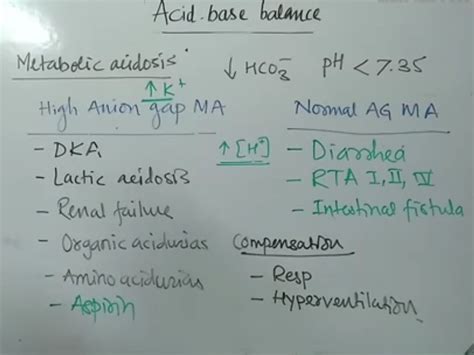 Acid-base balance
Metabolic acidosis
↓ HCO3- pH < 7.35
↑ K+
High Anion gap MA
Normal AG MA
- DKA
- Lactic acidosis
- Renal failure
- Organic acidurias
- Amino acidurias
- Aspirin
↑ [H+]
- Diarrhea
- RTA I, II, IV
- Intestinal fistula
Compensation
- Resp
- Hyperventilation